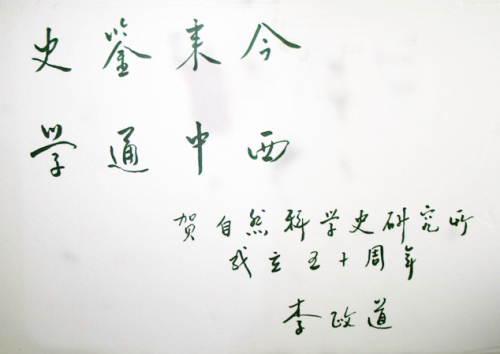 史鉴来今
学通中西
贺自然科学史研究所
成立五十周年
李政道